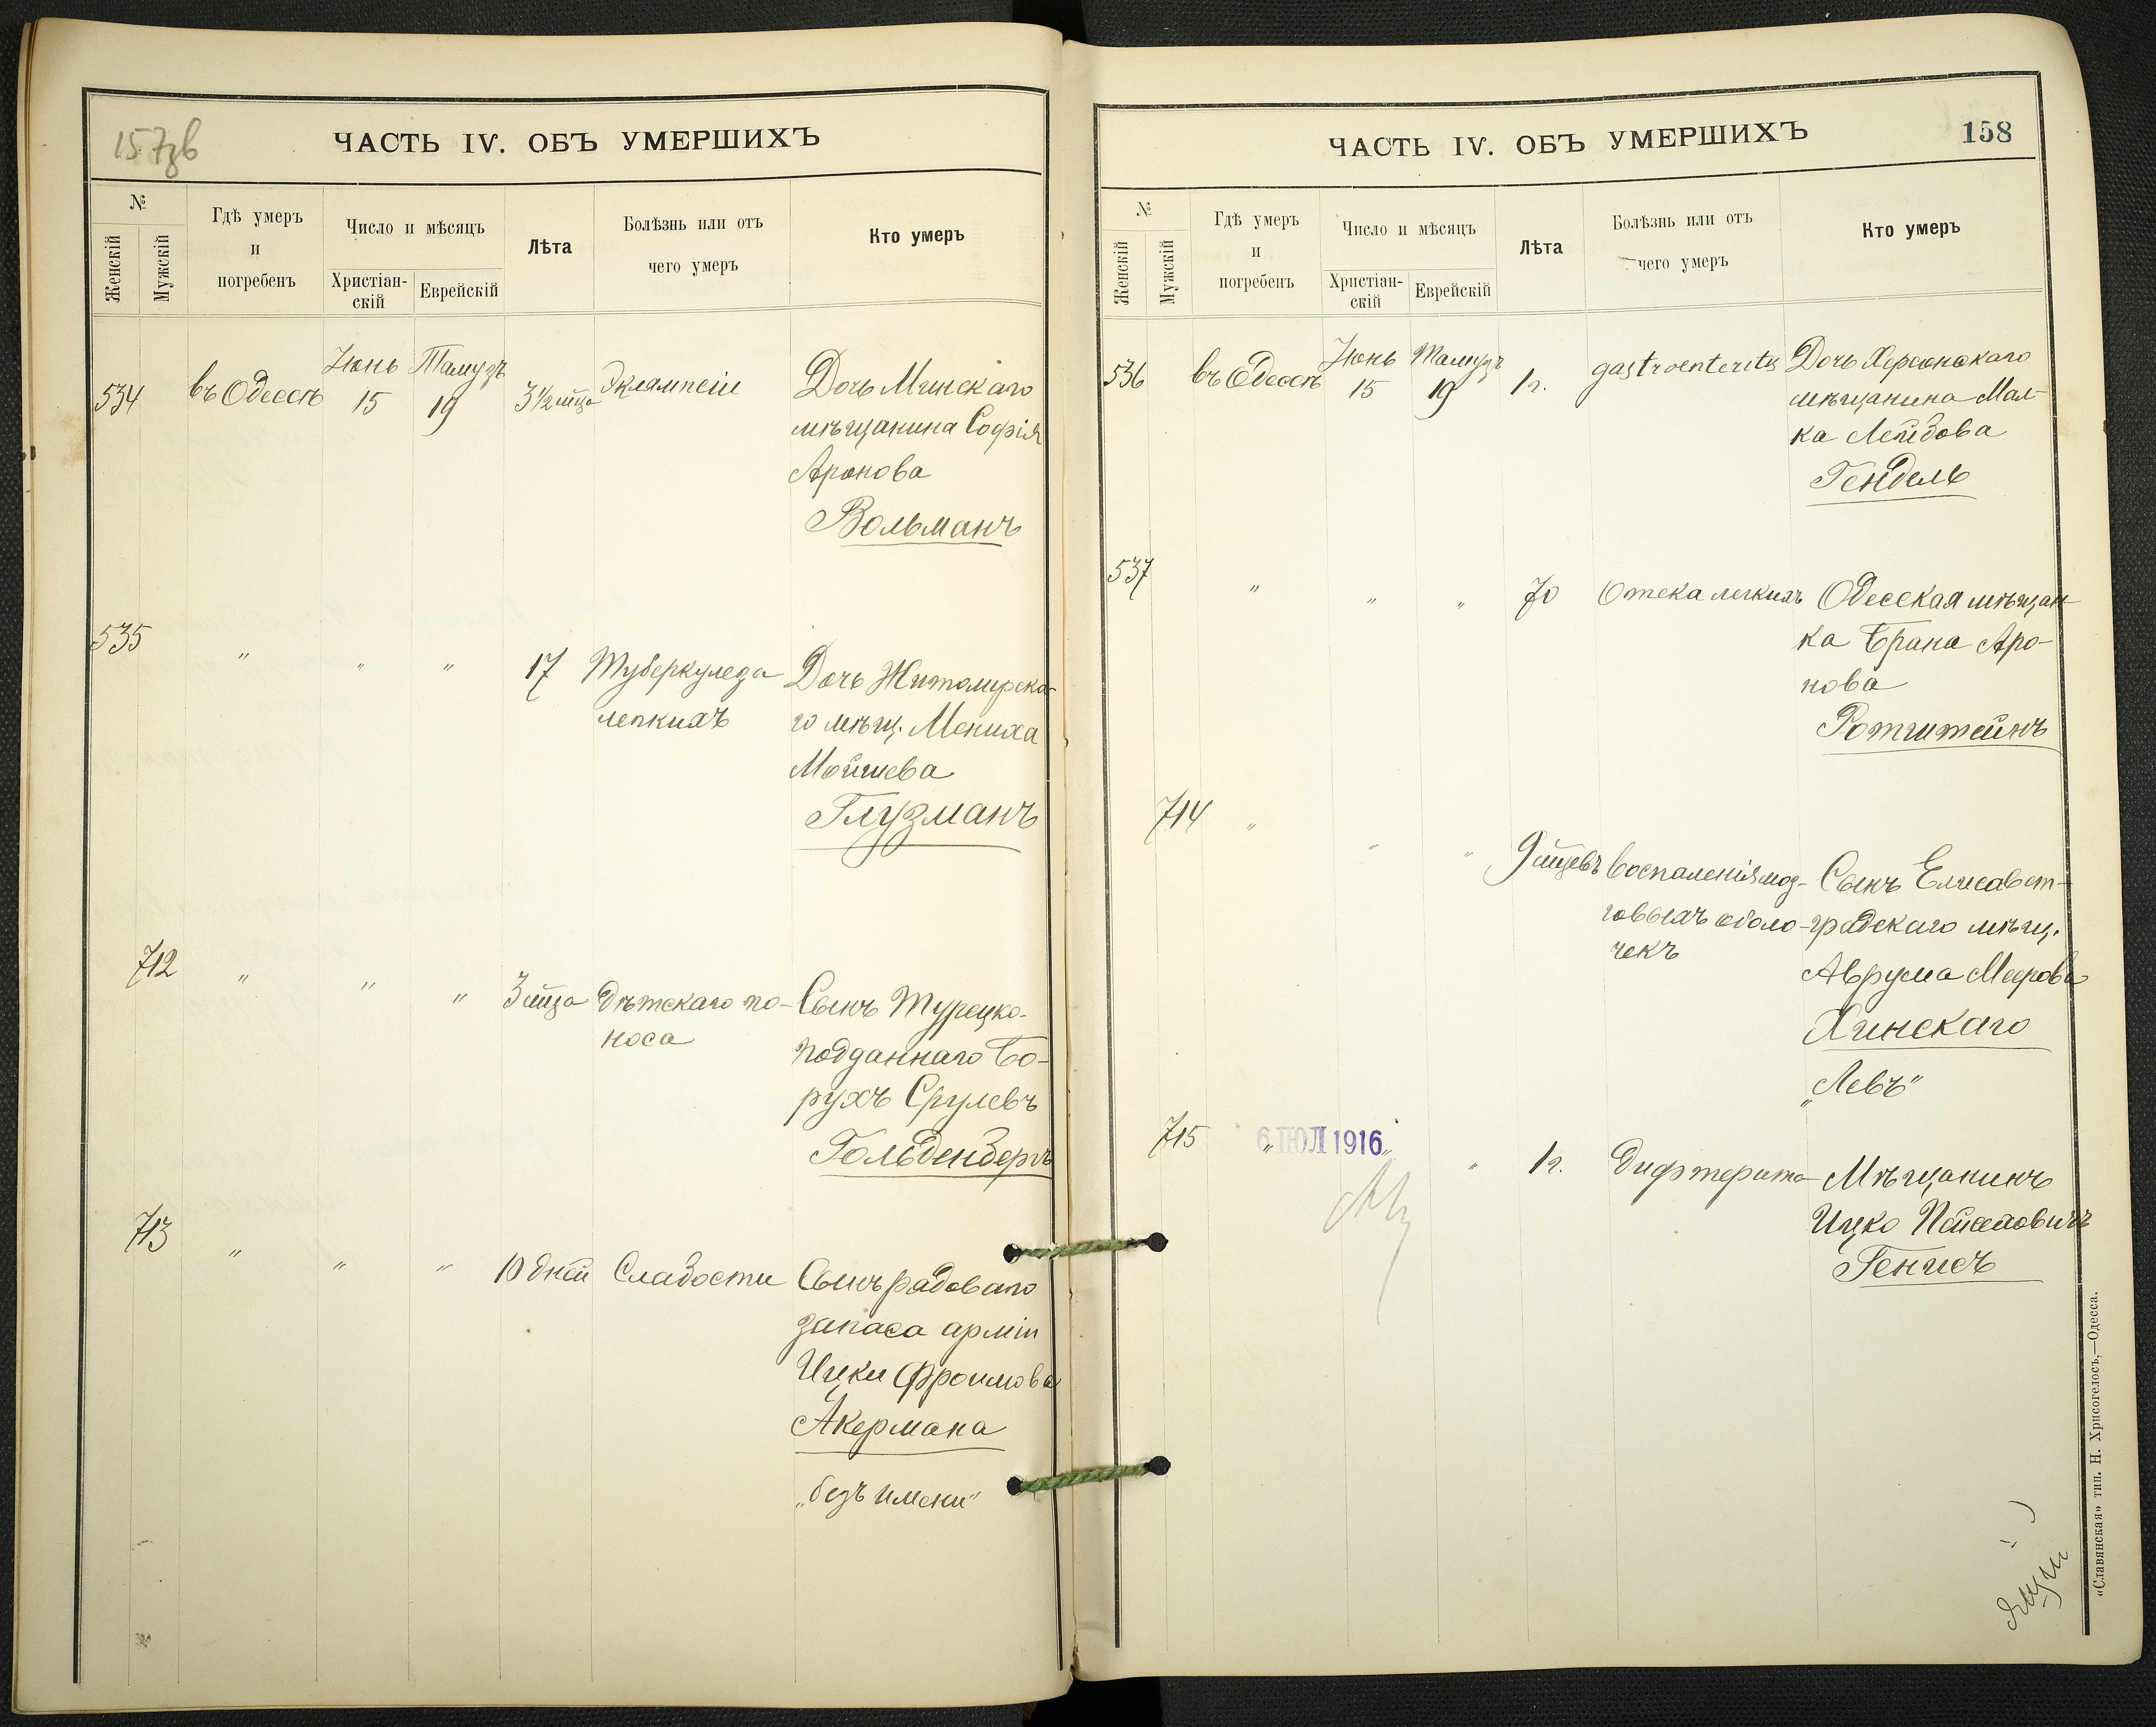 157зв
ЧАСТЬ IV. ОБЪ УМЕРШИХЪ
№
Женскій
Мужскій
Гдѣ умеръ
и
погребенъ
Число и мѣсяцъ
Христіан-
скій
Еврейскій
Лѣта
Болѣзнь или отъ
чего умеръ
Кто умеръ
534 въ Одессѣ Іюнь 15 Тамузъ 19 3½ мѣца Эклямпсіи Дочь Минскаго
мѣщанина Софія
Аронова
Вольманъ
535 " " " 17 Туберкулеза Дочь Житомирска-
легкихъ го мѣщ. Мениха
Мойшева
Глузманъ
712 " " " 3 мѣца Дѣтскаго по- Сынъ Турецко-
носа подданнаго Бо-
рухъ Срулевъ
Гольденбергъ
713 " " " 10 дней Слабости Сынъ рядоваго
запаса арміи
Ицки Фроимова
Акермана
„безъ имени"
ЧАСТЬ IV. ОБЪ УМЕРШИХЪ
158
№
Женскій
Мужскій
Гдѣ умеръ
и
погребенъ
Число и мѣсяцъ
Христіан-
скій
Еврейскій
Лѣта
Болѣзнь или отъ
чего умеръ
Кто умеръ
536 въ Одессѣ Іюнь 15 Тамузъ 19 1 г. gastroenteritis Дочь Херсонскаго
мѣщанина Мал-
ка Лейбова
Гендель
537 " " " 70 Отека легкихъ Одесская мѣщан-
ка Брана Аро-
нова
Ротштейнъ
714 " " " 9 мѣцевъ Воспаленія моз- Сынъ Елисавет-
говыхъ оболо- градскаго мѣщ.
чекъ Аврума Меерова
Хинскаго
„Левъ"
715 " 6 ІЮЛ 1916 " " 1 г. Дифтерита Мѣщанинъ
Ицко
Генисъ
«Славянская» тип. Н. Хрисогелосъ,—Одесса.